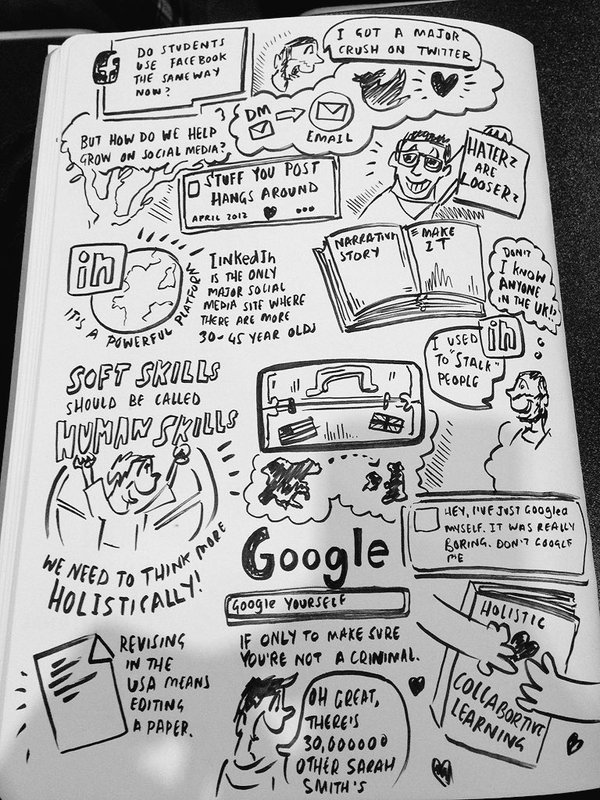 DO STUDENTS
USE FACEBOOK
THE SAME WAY
NOW?
I GOT A MAJOR
CRUSH ON TWITTER
DM
EMAIL
BUT HOW DO WE HELP
GROW ON SOCIAL MEDIA?
STUFF YOU POST
HANGS AROUND
APRIL 2012
HATER?
ARE
LOOSER?
in
IT'S A POWERFUL PLATFORM
LINKEDIn
IS THE ONLY
MAJOR SOCIAL
MEDIA SITE WHERE
THERE ARE MORE
30-45 YEAR OLDS
NARRATIVE
STORY
MAKE
IT
DON'T
I KNOW
ANYONE
IN THE UK!?
in
I USED
TO "STALK"
PEOPLE
SOFT SKILLS
SHOULD BE CALLED
HUMAN SKILLS
WE NEED TO THINK MORE
HOLISTICALLY!
HEY, I'VE JUST GOOGLED
MYSELF. IT WAS REALLY
BORING. DON'T GOOGLE
ME
Google
GOOGLE YOURSELF
IF ONLY TO MAKE SURE
YOU'RE NOT A CRIMINAL.
HOLISTIC
COLLABORTIVE
LEARNING
REVISING
IN THE
USA MEANS
EDITING
A PAPER.
OH GREAT,
THERE'S
30,000000
OTHER SARAH
SMITH'S